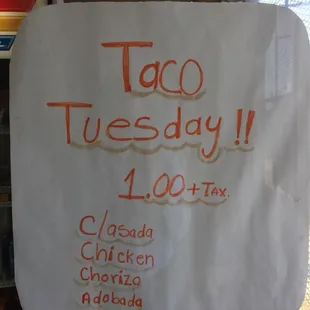 Taco
Tuesday!!
1.00+Tax.
C/asada
Chicken
Chorizo
Adobada